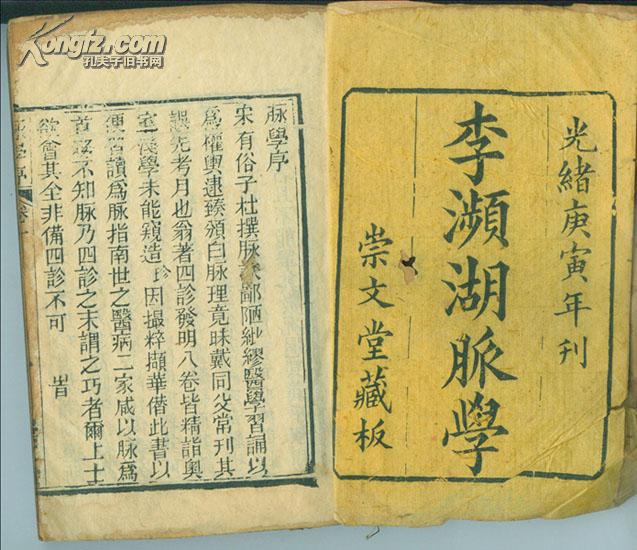 光緒庚寅年刊
李瀕湖脈學
崇文堂藏板
脉學序
宋有俗子杜撰脉訣鄙陋紕繆醫學習誦以
為權輿逮臻頒白脉理竟昧戴同父常刊其
誤先考月池翁著四診發明八卷皆精詣奧
室淺學未能窺造珍因撮粹擷華僣此書以
便習讀為脉指南世之醫病二家咸以脉為
首務不知脉乃四診之末謂之巧者爾上士
欲會其全非備四診不可
旹
脉學序
Kongfz.com
孔夫子旧书网